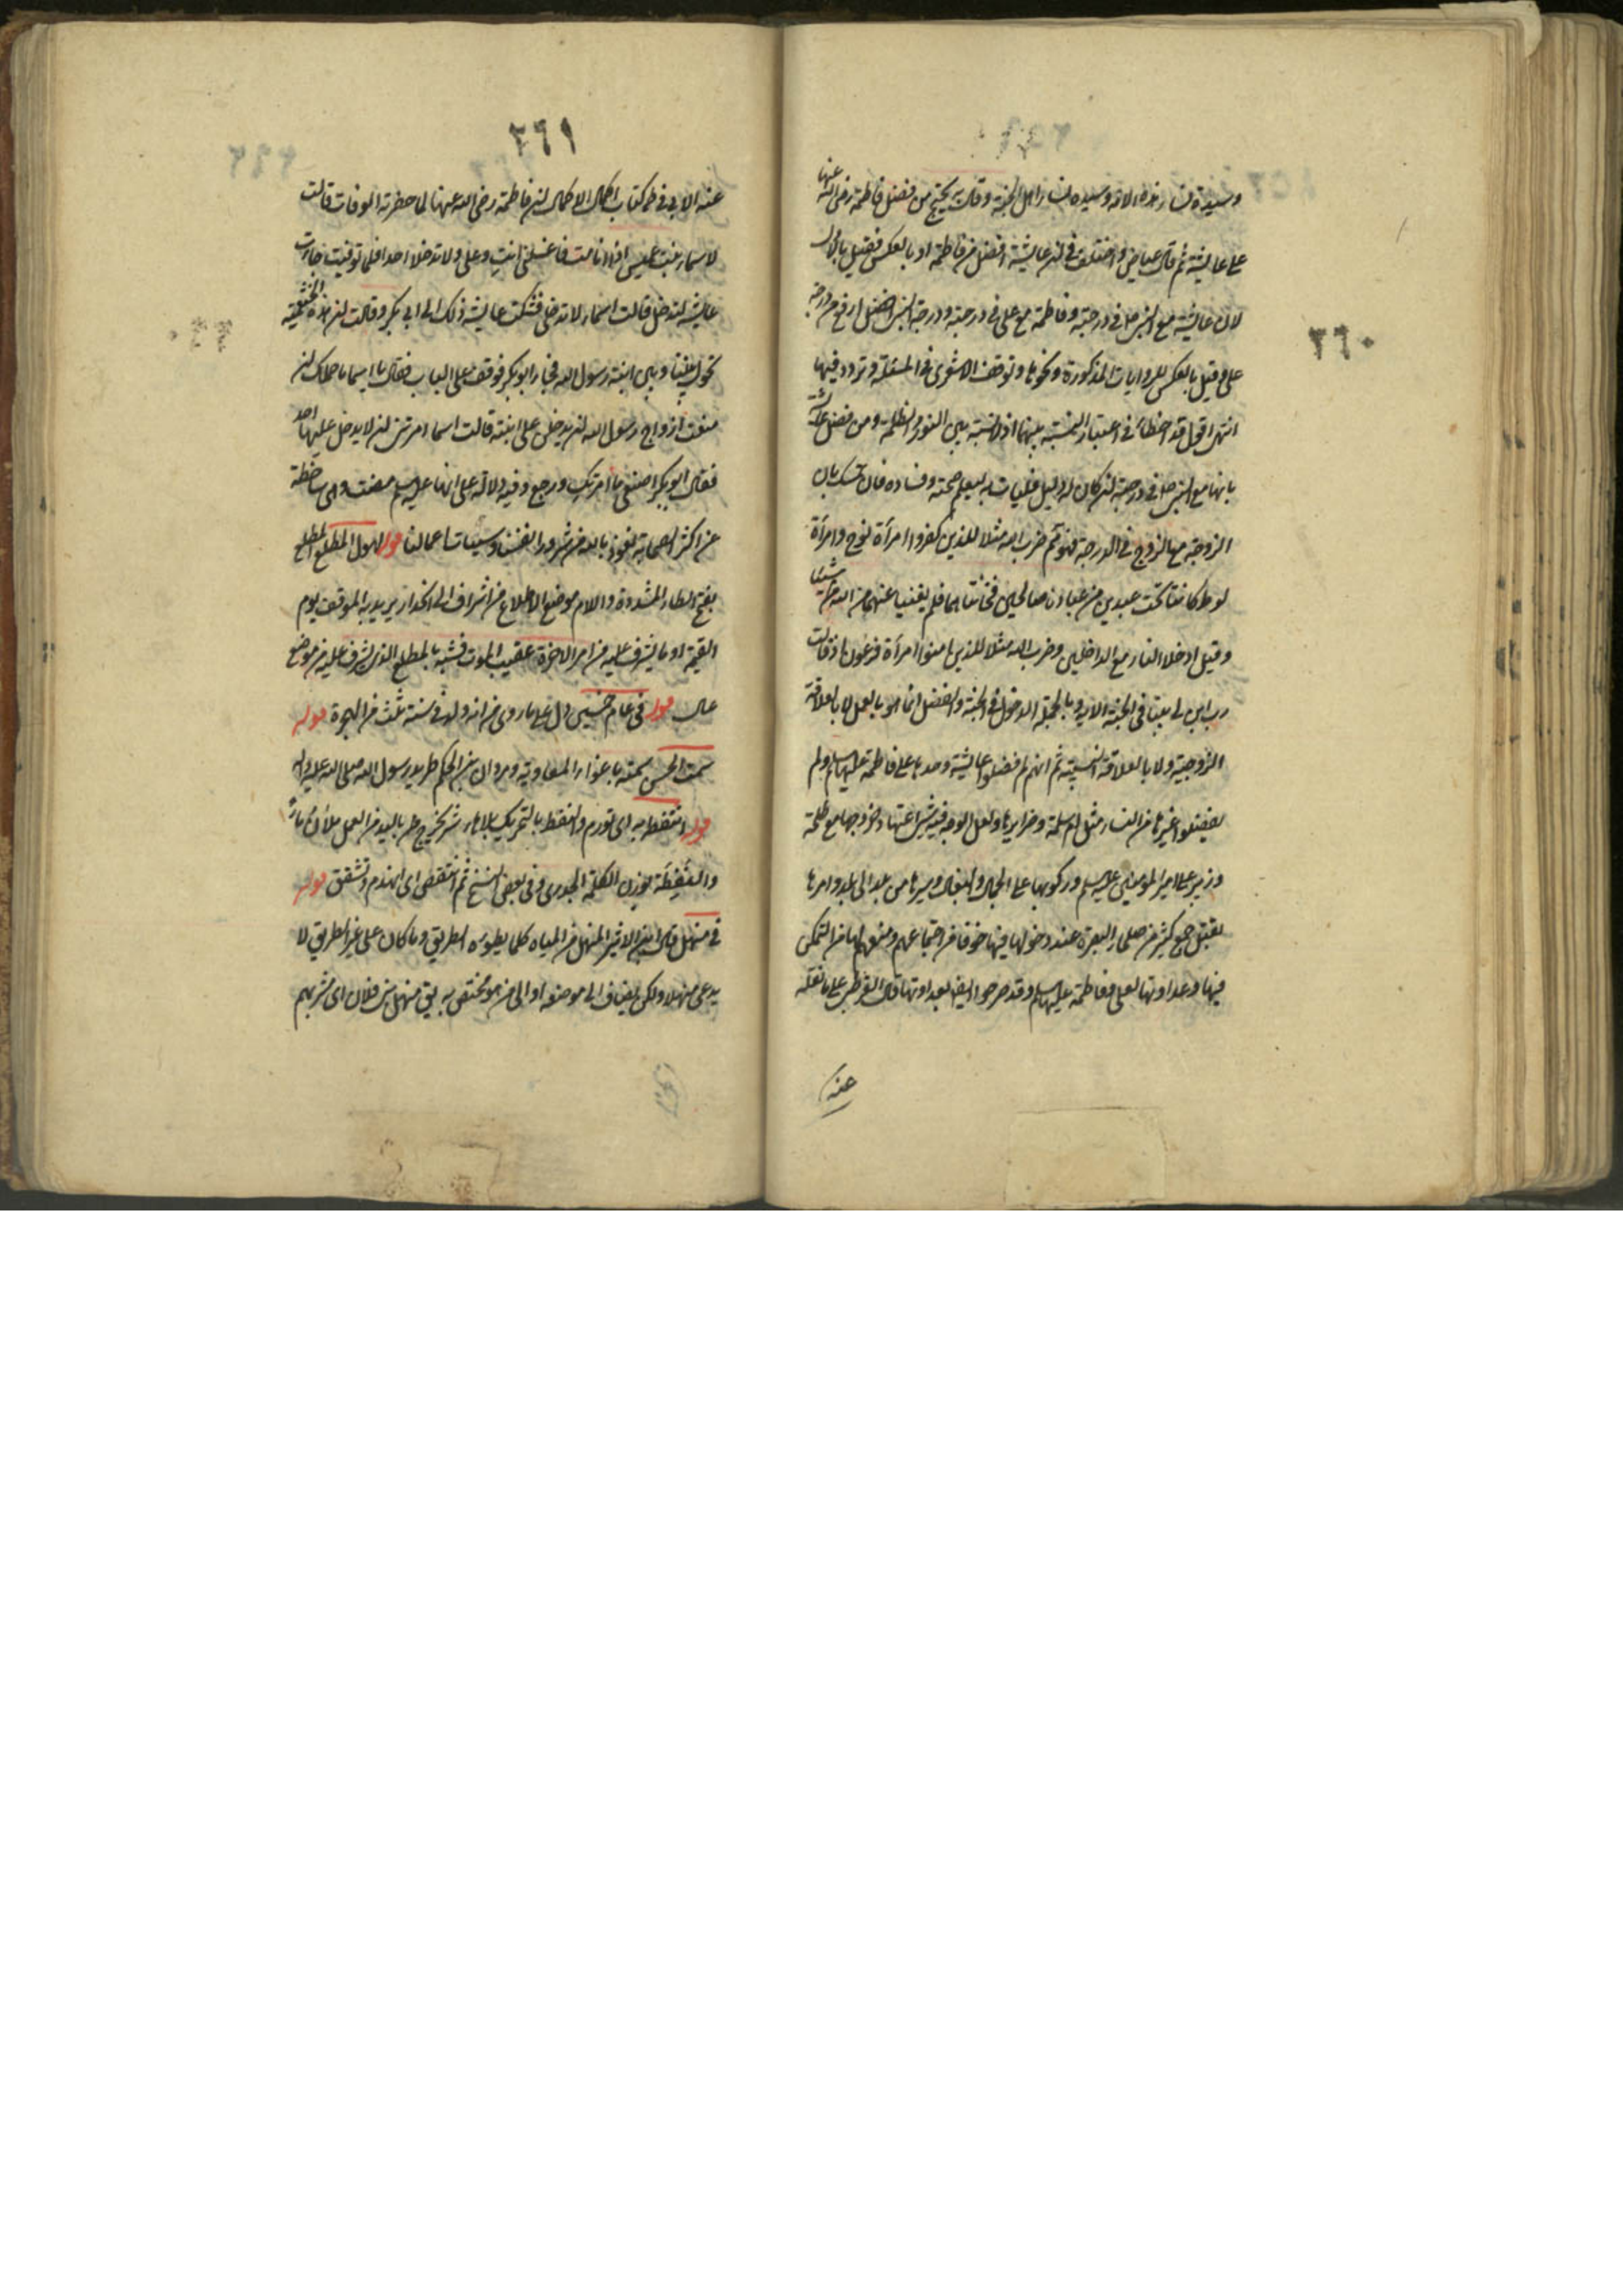 ٢٦٠
وسيدة نساء هذه الامة وسيدة نساء اهل الجنة وقال يحتج من فضل فاطمة رضى الله عنها
على عايشة ثم قال عياض واختلف في ان عايشة افضل من فاطمة او بالعكس فقيل بالاول
لان عايشة مع النبي ص في درجته وفاطمة مع على في درجته ودرجة النبي افضل ارفع من درجة
على وقيل بالعكس للروايات المذكورة ونحوها وتوقف الاشعرى في المسئلة وتردد فيها
انتهى اقول قد اخطأ في اعتبار النسبة بينهما اذ لا نسبة بين النور والظلمة ومن فضل عائشة
بانها مع النبي ص في درجته ان كان له دليل فليات به ليعلم صحته وفساده فان تمسك بان
الزوجة مع الزوج في الدرجة فهو ثم ضرب الله مثلا للذين كفروا امرأة نوح وامرأة
لوط كانتا تحت عبدين من عبادنا صالحين فخانتاهما فلم يغنيا عنهما من الله شيئا
وقيل ادخلا النار مع الداخلين وضرب الله مثلا للذين امنوا امرأة فرعون اذ قالت
رب ابن لى بيتا في الجنة الاية وبالجملة الدخول في الجنة والفضل انما هو بالعمل لا بالعلاقة
الزوجية ولا بالعلاقة النسبية ثم انهم لم فضلوا عايشة وحدها على فاطمة عليها السلم ولم
يفضلوا غيرها من النساء مثل ام سلمة وضرايرها ولعل الوجه فيه شراعتها وخروجها مع طلحة
وزبير على امير المؤمنين عليه السلم وركوبها على الجمال والبغال وسيرها من بلد الى بلد وامرها
بقتل جمع كثير من صلحاء البصرة عند دخولها فيها خوفا من اجتماعهم ومنعهم لها من التمكن
فيها وعداوتها لعلى وفاطمة عليهما السلم وقد صرحوا ايضا بعداوتها قال القرطبى على ما نقله
عنه
٢٦١
عنه الابي في كتاب اكمال الاكمال ان فاطمة رضى الله عنها لما حضرته الوفات قالت
لاسماء بنت عميس اذا انا مت فاغسلني انت وعلى ولا تدخلا احدا فلما توفيت جاءت
عايشة لتدخل قالت اسماء لا تدخلى فشكت عايشة ذلك الى ابي بكر وقالت ان هذه الخثعمية
تحول بيننا وبين ابنة رسول الله فجاء ابو بكر فوقف على الباب فقال يا اسما ما حملك ان
منعت ازواج رسول الله ان يدخلن على ابنته قالت اسما امرتنى ان لا يدخل عليها احد
فقال ابو بكر اصنعى ما امرتك ورجع وفيه دلالة على انها عليها السلم مضت وهى ساخطة
عن اكثر الصحابة نعوذ بالله من شرور انفسنا وسيئات اعمالنا قوله لهول المطلع المطلع
بفتح الطاء المشددة واللام موضع الاطلاع من اشراف الى انحدار يريد به الموقف يوم
القيمة او ما يشرف عليه من امر الاخرة عقيب الموت فشبه بالمطلع الذى يشرف عليه من موضع
عال قوله في عام خمسين دل على ما روى من انه ولد في سنة ثلث من الهجرة قوله
سمت الحسن سمته باغواء المعاوية ومروان بن الحكم طريد رسول الله صلى الله عليه وآله
قوله انتفط به اى تورم والنفط بالتحريك بلاهاء بثر يخرج باليد من العمل ملآن ماء
والنفطة بوزن الكلمة الجدرى وفي بعض النسخ ثم انتقض اى انهدم وتشقق قوله
في منهل قال ابن الاثير المنهل من المياه كلما يطوءه الطريق وما كان على غير الطريق لا
يدعى منهلا ولكن يضاف الى موضعه او الى من هو مختص به يق منهل بنى فلان اى مشربهم